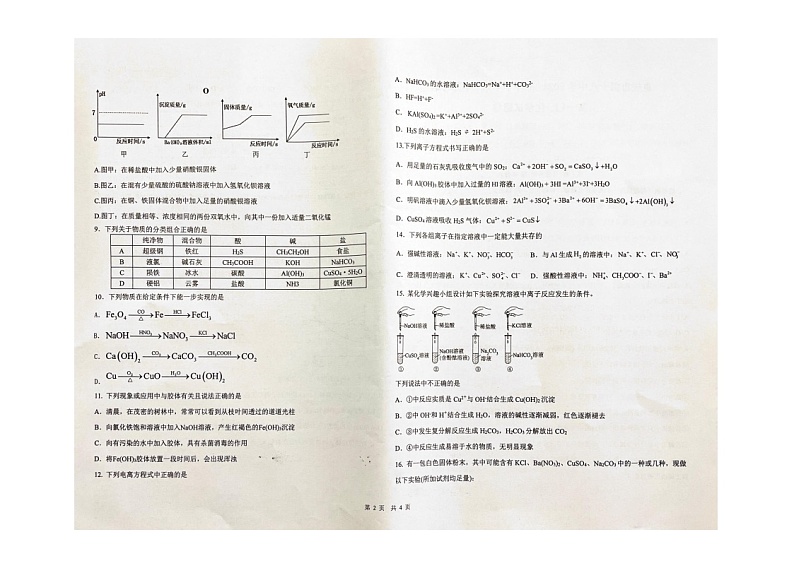 pH
7
反应时间/s
甲
沉淀质量/g
O
Ba(OH)₂溶液体积/ml
乙
固体质量/g
反应时间/s
丙
氧气质量/g
反应时间/s
丁
A.图甲：在稀盐酸中加入少量硝酸银固体
B.图乙：在混有少量硫酸的硫酸钠溶液中加入氢氧化钡溶液
C.图丙：在铜、铁固体混合物中加入足量的硝酸银溶液
D.图丁：在质量相等、浓度相同的两份双氧水中，向其中一份加入适量二氧化锰
9. 下列关于物质的分类组合正确的是
纯净物 混合物 酸 碱 盐
A 超级钢 铁红 H₂S CH₃CH₂OH 食盐
B 液氯 碱石灰 CH₃COOH KOH NaHCO₃
C 陨铁 冰水 碳酸 Al(OH)₃ CuSO₄·5H₂O
D 硬铝 云雾 盐酸 NH3 氯化铜
10. 下列物质在给定条件下能一步实现的是
A. Fe₃O₄ —CO/△→ Fe —HCl→ FeCl₃
B. NaOH —HNO₃→ NaNO₃ —KCl→ NaCl
C. Ca(OH)₂ —CO₂→ CaCO₃ —CH₃COOH→ CO₂
D. Cu —O₂/△→ CuO —H₂O→ Cu(OH)₂
11. 下列现象或应用中与胶体有关且说法正确的是
A. 清晨，在茂密的树林中，常常可以看到从枝叶间透过的道道光柱
B. 向氯化铁饱和溶液中加入NaOH溶液，产生红褐色的Fe(OH)₃沉淀
C. 向有污染的水中加入胶体，具有杀菌消毒的作用
D. 将Fe(OH)₃胶体放置一段时间后，会出现浑浊
12. 下列电离方程式中正确的是
A. NaHCO₃的水溶液：NaHCO₃=Na⁺+H⁺+CO₃²⁻
B. HF=H⁺+F⁻
C. KAl(SO₄)₂=K⁺+Al³⁺+2SO₄²⁻
D. H₂S的水溶液：H₂S ⇌ 2H⁺+S²⁻
13.下列离子方程式书写正确的是
A. 用足量的石灰乳吸收废气中的SO₂：Ca²⁺+2OH⁻+SO₂=CaSO₃↓+H₂O
B. 向Al(OH)₃胶体中加入过量的HI溶液：Al(OH)₃+3HI=Al³⁺+3I⁻+3H₂O
C. 明矾溶液中滴入少量氢氧化钡溶液：2Al³⁺+3SO₄²⁻+3Ba²⁺+6OH⁻=3BaSO₄↓+2Al(OH)₃↓
D. CuSO₄溶液吸收H₂S气体：Cu²⁺+S²⁻=CuS↓
14. 下列各组离子在指定溶液中一定能大量共存的
A. 强碱性溶液：Na⁺、K⁺、NO₃⁻、HCO₃⁻ B. 与Al生成H₂的溶液中：Na⁺、K⁺、Cl⁻、NO₃⁻
C. 澄清透明的溶液：K⁺、Cu²⁺、SO₄²⁻、Cl⁻ D. 强酸性溶液中：NH₄⁺、CH₃COO⁻、I⁻、Ba²⁺
15. 某化学兴趣小组设计如下实验探究溶液中离子反应发生的条件。
NaOH溶液 稀盐酸 稀盐酸 KCl溶液
CuSO₄溶液 NaOH溶液（含酚酞溶液） Na₂CO₃溶液 NaHCO₃溶液
① ② ③ ④
下列说法中不正确的是
A. ①中反应实质是Cu²⁺与OH⁻结合生成Cu(OH)₂沉淀
B. ②中OH⁻和H⁺结合生成H₂O，溶液的碱性逐渐减弱，红色逐渐褪去
C. ③中发生复分解反应生成H₂CO₃，H₂CO₃分解放出CO₂
D. ④中反应生成易溶于水的物质，无明显现象
16. 有一包白色固体粉末，其中可能含有KCl、Ba(NO₃)₂、CuSO₄、Na₂CO₃中的一种或几种，现做
以下实验(所加试剂均足量)：
第 2 页 共 4 页